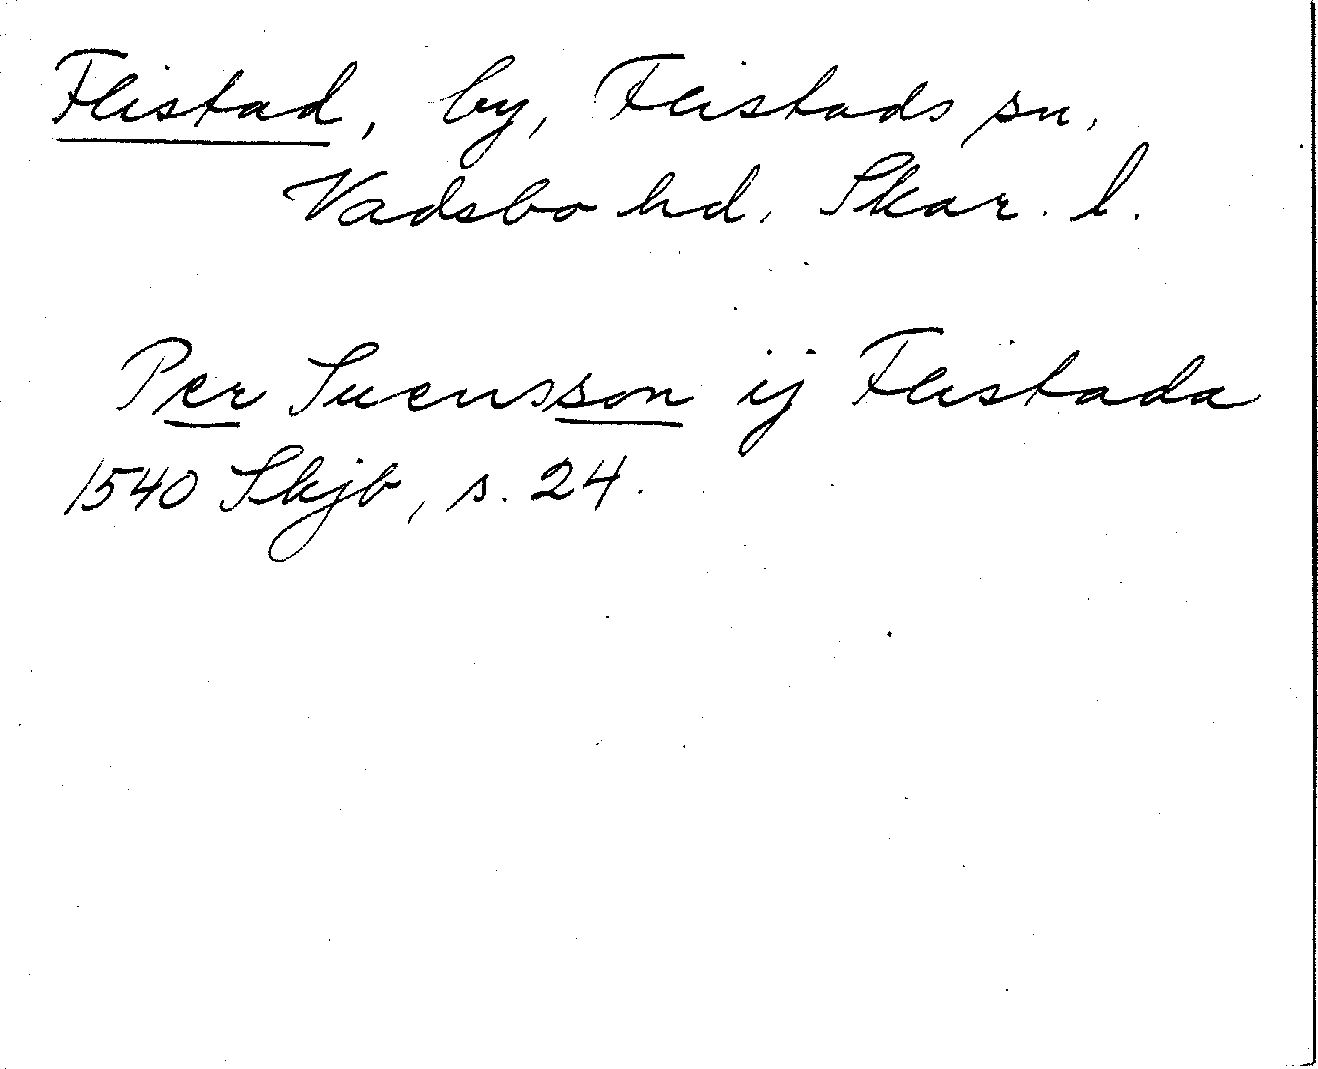 Flistad, by, Flistads sn,
Vadsbo hd, Skar. l.
Per Suensson ij Flistada
1540 Skjb, s. 24.